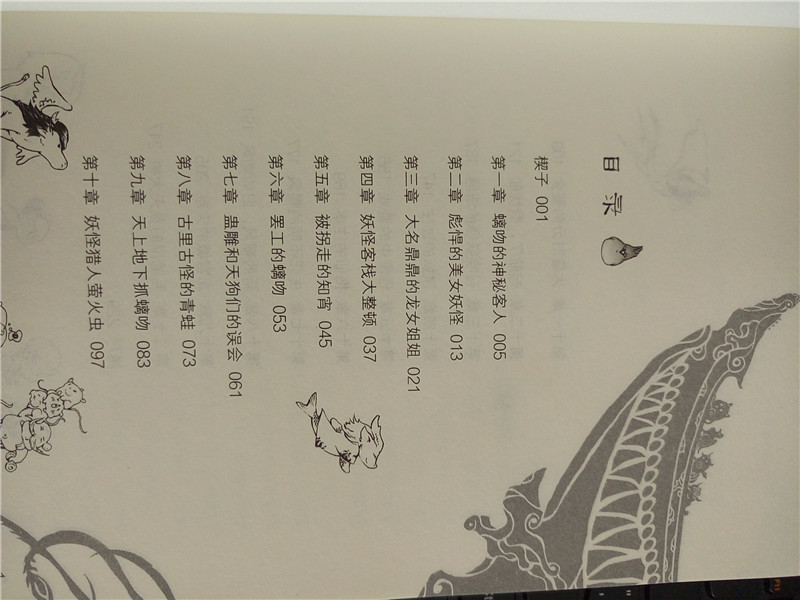 目录
楔子 001
第一章 螭吻的神秘客人 005
第二章 彪悍的美女妖怪 013
第三章 大名鼎鼎的龙女姐姐 021
第四章 妖怪客栈大整顿 037
第五章 被拐走的知宵 045
第六章 罢工的螭吻 053
第七章 蛊雕和天狗们的误会 061
第八章 古里古怪的青蛙 073
第九章 天上地下抓螭吻 083
第十章 妖怪猎人萤火虫 097